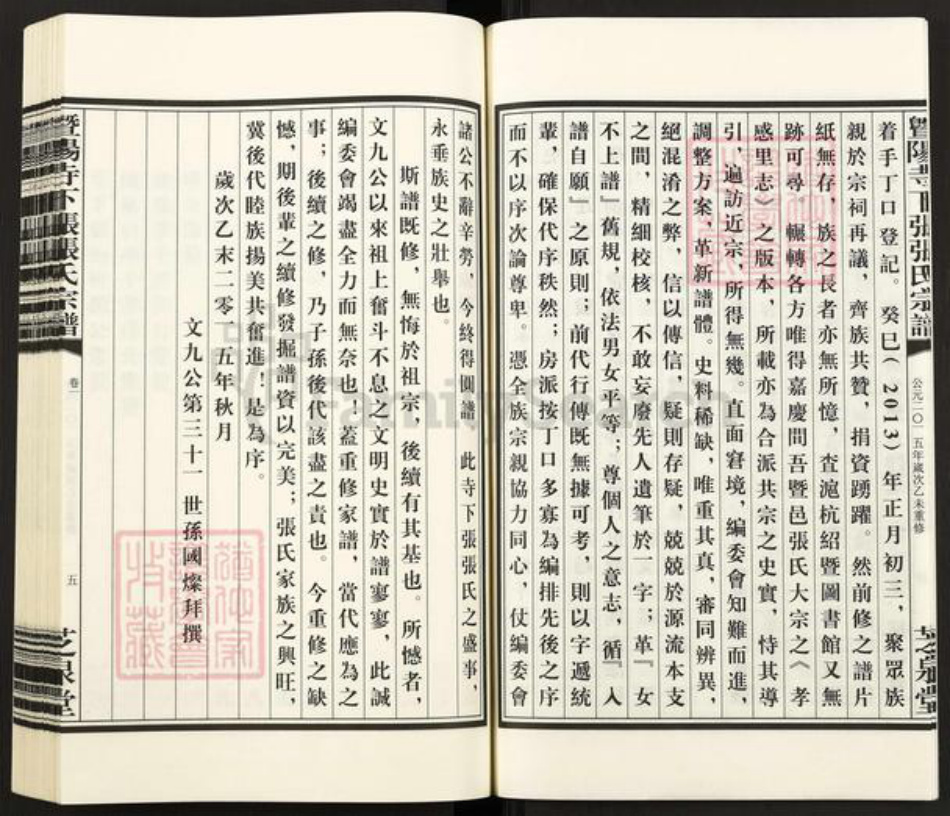 暨陽寺下張張氏宗譜
公元二〇一五年歲次乙未重修
芝泉堂
着手丁口登記。癸巳(2013)年正月初三，聚眾族
親於宗祠再議，齊族共贊，捐資踴躍。然前修之譜片
紙無存，族之長者亦無所憶，查滬杭紹暨圖書館又無
跡可尋，輾轉各方唯得嘉慶間吾暨邑張氏大宗之《孝
感里志》之版本，所載亦為合派共宗之史實，恃其導
引，遍訪近宗，所得無幾。直面窘境，編委會知難而進，
調整方案，革新譜體。史料稀缺，唯重其真，審同辨異，
絕混淆之弊，信以傳信，疑則存疑，兢兢於源流本支
之間，精細校核，不敢妄廢先人遺筆於一字；革『女
不上譜』舊規，依法男女平等；尊個人之意志，循『入
譜自願』之原則；前代行傳既無據可考，則以字遞統
輩，確保代序秩然；房派按丁口多寡為編排先後之序
而不以序次論尊卑。憑全族宗親協力同心，仗編委會
諸公不辭辛勞，今終得圓譜，此寺下張張氏之盛事，
永垂族史之壯舉也。
斯譜既修，無悔於祖宗，後續有其基也。所憾者，
文九公以來祖上奮斗不息之文明史實於譜寥寥，此誠
編委會竭盡全力而無奈也！蓋重修家譜，當代應為之
事；後續之修，乃子孫後代該盡之責也。今重修之缺
憾，期後輩之續修發掘譜資以完美；張氏家族之興旺，
冀後代睦族揚美共奮進！是為序。
歲次乙未二零一五年秋月
文九公第三十一世孫國燦拜撰
暨陽寺下張張氏宗譜
卷一
五
芝泉堂